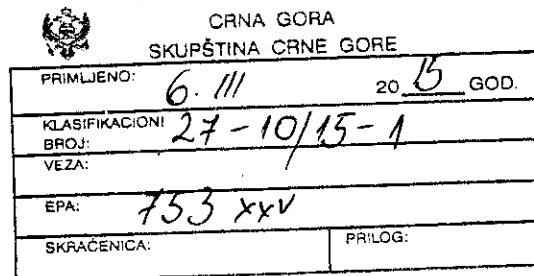 CRNA GORA
SKUPŠTINA CRNE GORE
PRIMLJENO: 6. III 2015 GOD.
KLASIFIKACIONI
BROJ: 27-10/15-1
VEZA:
EPA: 753 XXV
SKRAĆENICA: PRILOG: